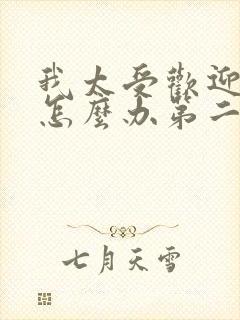 我太受歡迎
怎麼办第二
七月天雪